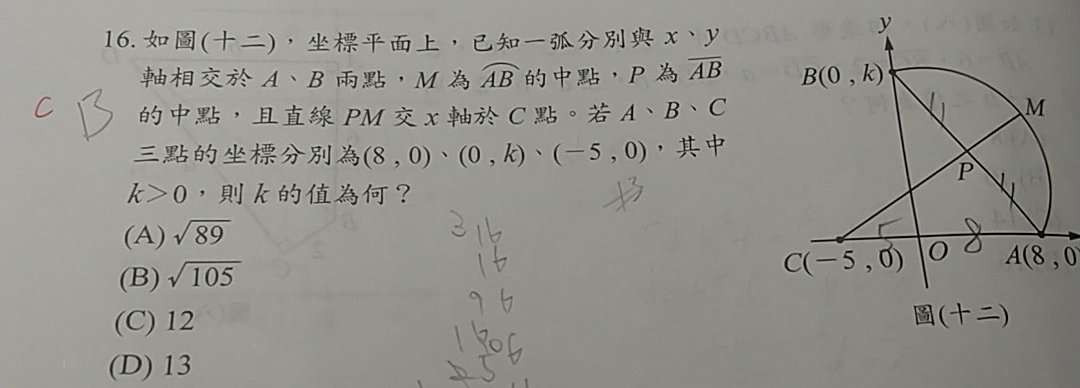 16. 如圖(十二),坐標平面上,已知一弧分別與 x、y
軸相交於 A、B 兩點,M 為 AB 的中點,P 為 AB
的中點,且直線 PM 交 x 軸於 C 點。若 A、B、C
三點的坐標分別為(8 , 0)、(0 , k)、(-5 , 0),其中
k>0,則 k 的值為何?
(A) √89
(B) √105
(C) 12
(D) 13
C
B
y
B(0 , k)
M
P
5
8
C(-5 , 0)
O
A(8 , 0
圖(十二)